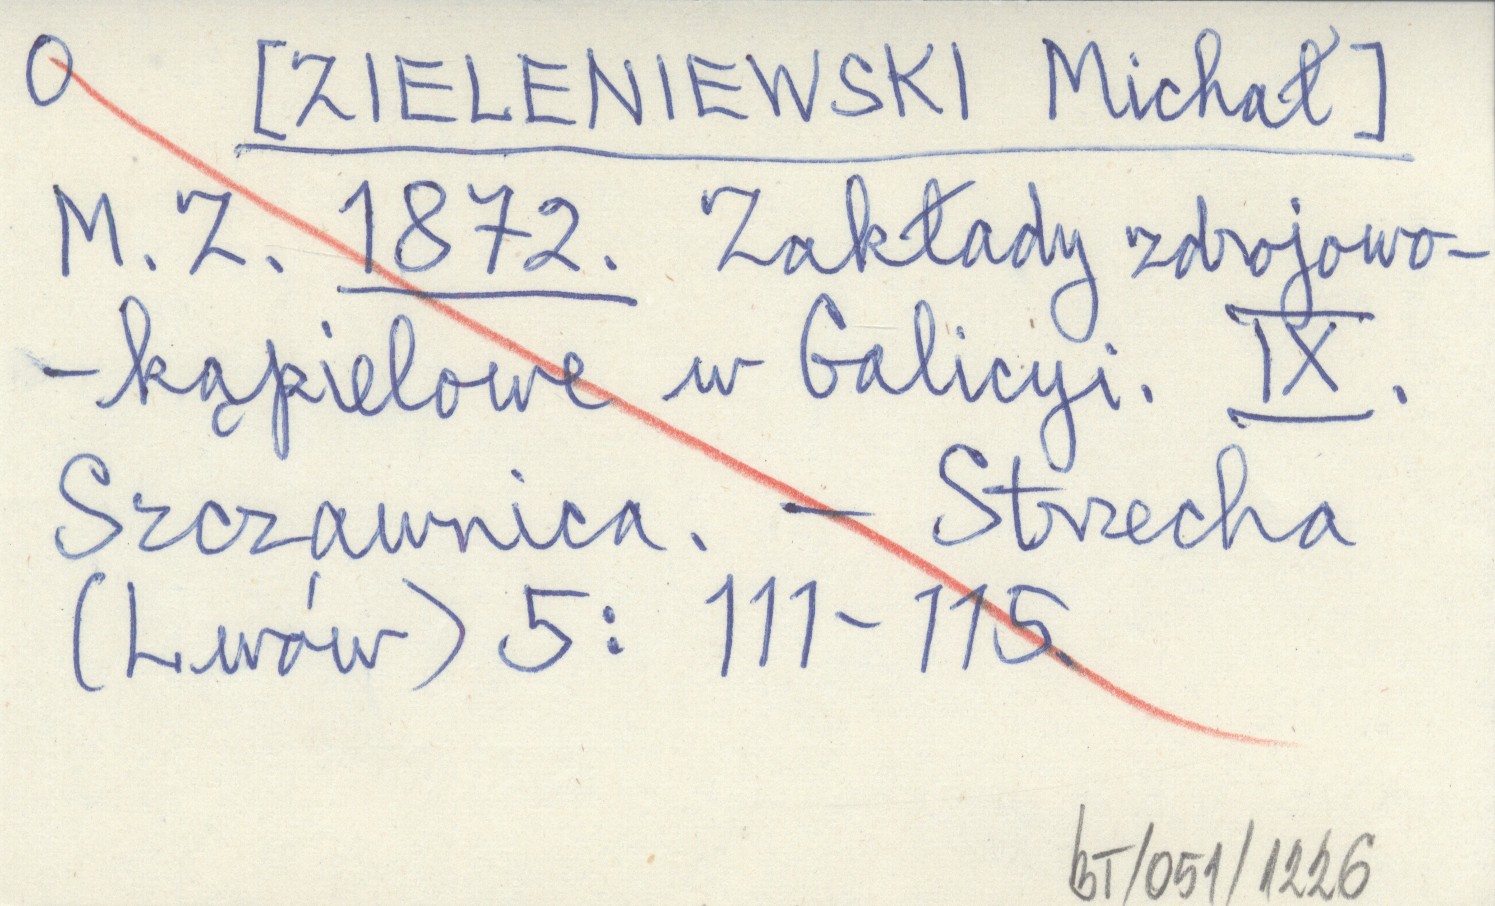 O [ZIELENIEWSKI Michał]
M. Z. 1872. Zakłady zdrojowo-
-kąpielowe w Galicyi. IX.
Szczawnica. — Strzecha
(Lwów) 5: 111-115.
BT/051/1226